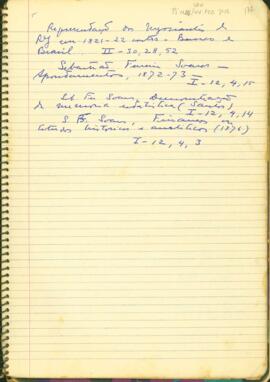 Representação dos Negociantes do
RJ em 1821-22 contra - Banco do
Brasil II-30,28,52
Sebastião Ferreira Soares -
Apontamentos, 1872-73 -
I-12,4,15
Seb Fer Soares, Demonstração
da memoria estatistica (Santos)
I-12,4,14
S. F. Soares, Financas ou
estudos historicos e analiticos (1876)
I-12,4,3